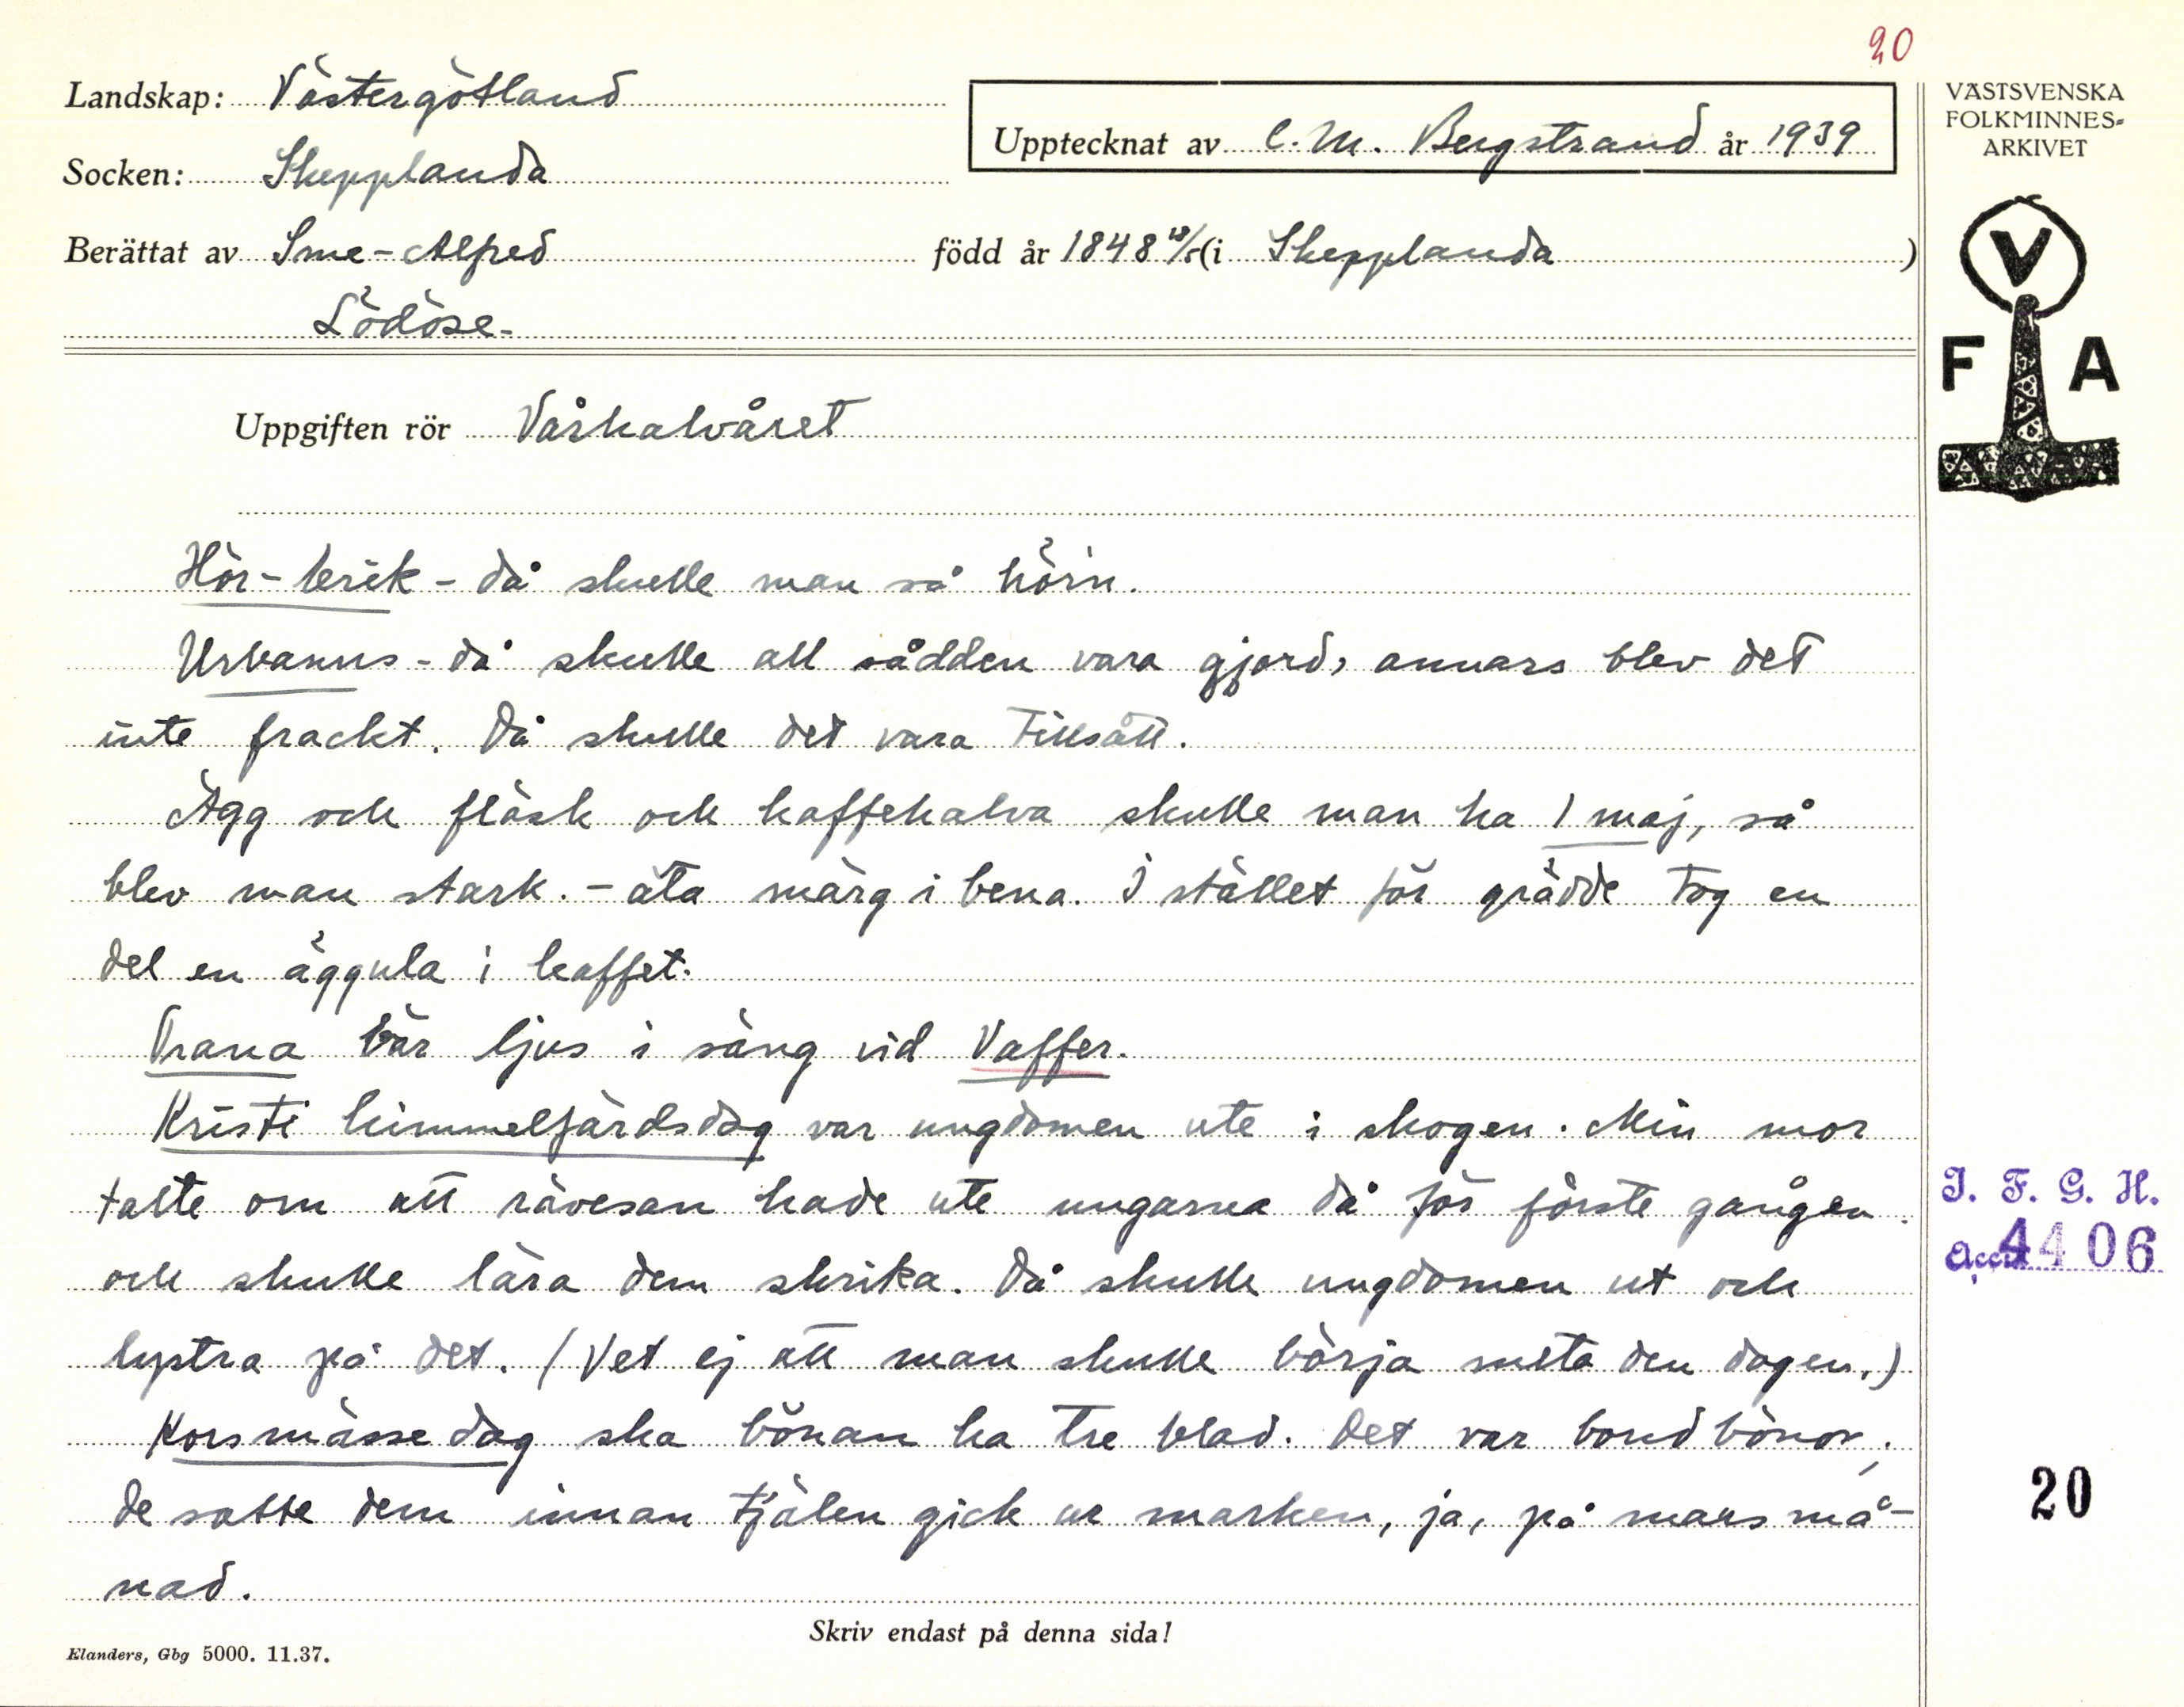 20
Landskap: Västergötland
VÄSTSVENSKA
FOLKMINNES-
ARKIVET
Upptecknat av C. M. Bergstrand år 1939
Socken: Skepplanda
Berättat av Sme-Alfred född år 1848 18/5 (i Skepplanda)
Lödöse.
V
F A
Uppgiften rör Vårhalvåret
Hör-Eerik - då skulle man så hörn.
Urbanus - då skulle all sådden vara gjord, annars blev det
inte frackt. Då skulle det vara tillsått.
Ägg och fläsk och kaffehalva skulle man ha 1 maj, så
blev man stark. - äta märg i bena. I stället för grädde tog en
del en äggula i kaffet.
Trana bär ljus i säng vid Vaffer.
Kristi himmelfärdsdag var ungdomen ute i skogen. Min mor
talte om att rävesan hade ute ungarna då för förste gången
och skulle lära dem skrika. Då skulle ungdomen ut och
lystra på det. (Vet ej att man skulle börja meta den dagen.)
Korsmässedag ska bönan ha tre blad. Det var bondbönor,
de satte dem innan tjälen gick ur marken, ja, på mars må-
nad.
I. F. G. H.
Acc. 4406
20
Skriv endast på denna sida!
Elanders, Gbg 5000. 11.37.